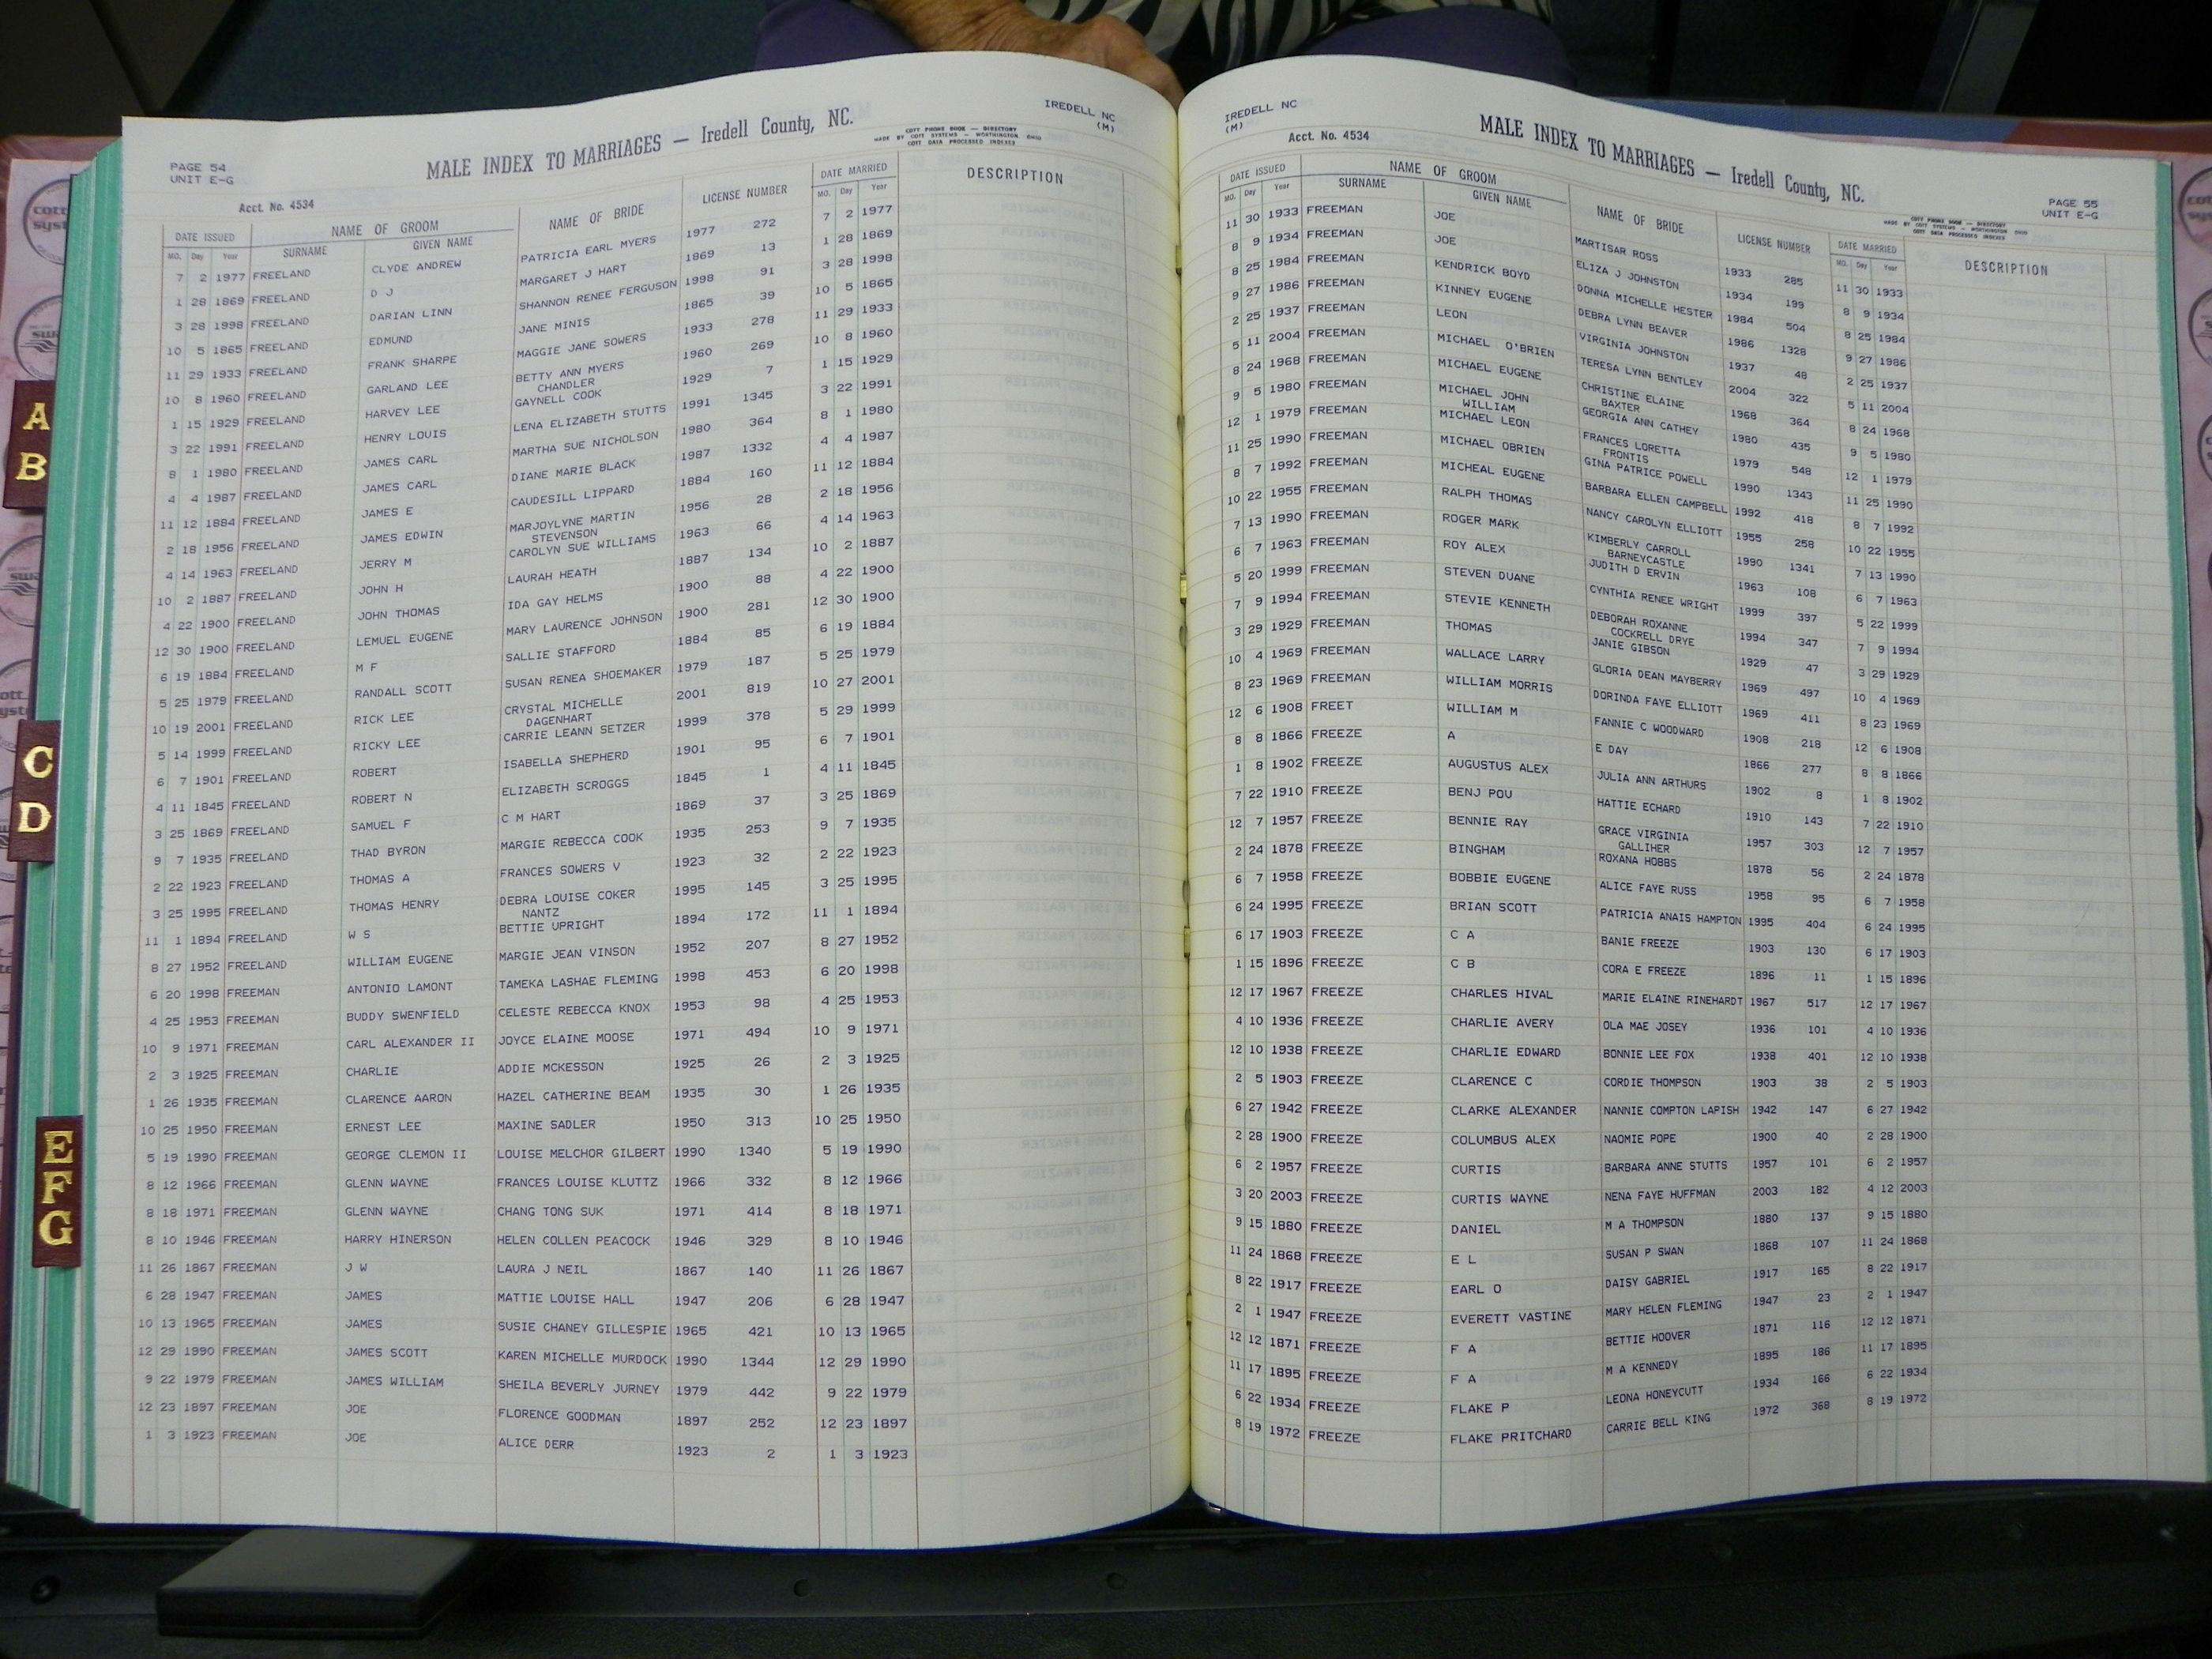 IREDELL NC
(M)
MALE INDEX TO MARRIAGES — Iredell County, NC.
COTT PHONE BOOK — DIRECTORY
MADE BY COTT SYSTEMS — WORTHINGTON OHIO
COTT DATA PROCESSED INDEXES
PAGE 54
UNIT E-G
Acct. No. 4534
DATE ISSUED NAME OF GROOM NAME OF BRIDE LICENSE NUMBER DATE MARRIED DESCRIPTION
MO. Day Year SURNAME GIVEN NAME MO. Day Year
7 2 1977 FREELAND CLYDE ANDREW PATRICIA EARL MYERS 1977 272 7 2 1977
1 28 1869 FREELAND D J MARGARET J HART 1869 13 1 28 1869
3 28 1998 FREELAND DARIAN LINN SHANNON RENEE FERGUSON 1998 91 3 28 1998
10 5 1865 FREELAND EDMUND JANE MINIS 1865 39 10 5 1865
11 29 1933 FREELAND FRANK SHARPE MAGGIE JANE SOWERS 1933 278 11 29 1933
10 8 1960 FREELAND GARLAND LEE BETTY ANN MYERS 1960 269 10 8 1960
CHANDLER
1 15 1929 FREELAND HARVEY LEE GAYNELL COOK 1929 7 1 15 1929
3 22 1991 FREELAND HENRY LOUIS LENA ELIZABETH STUTTS 1991 1345 3 22 1991
8 1 1980 FREELAND JAMES CARL MARTHA SUE NICHOLSON 1980 364 8 1 1980
4 4 1987 FREELAND JAMES CARL DIANE MARIE BLACK 1987 1332 4 4 1987
11 12 1884 FREELAND JAMES E CAUDESILL LIPPARD 1884 160 11 12 1884
2 18 1956 FREELAND JAMES EDWIN MARJOYLYNE MARTIN 1956 28 2 18 1956
STEVENSON
4 14 1963 FREELAND JERRY M CAROLYN SUE WILLIAMS 1963 66 4 14 1963
10 2 1887 FREELAND JOHN H LAURAH HEATH 1887 134 10 2 1887
4 22 1900 FREELAND JOHN THOMAS IDA GAY HELMS 1900 88 4 22 1900
12 30 1900 FREELAND LEMUEL EUGENE MARY LAURENCE JOHNSON 1900 281 12 30 1900
6 19 1884 FREELAND M F SALLIE STAFFORD 1884 85 6 19 1884
5 25 1979 FREELAND RANDALL SCOTT SUSAN RENEA SHOEMAKER 1979 187 5 25 1979
10 19 2001 FREELAND RICK LEE CRYSTAL MICHELLE 2001 819 10 27 2001
DAGENHART
5 14 1999 FREELAND RICKY LEE CARRIE LEANN SETZER 1999 378 5 29 1999
6 7 1901 FREELAND ROBERT ISABELLA SHEPHERD 1901 95 6 7 1901
4 11 1845 FREELAND ROBERT N ELIZABETH SCROGGS 1845 1 4 11 1845
3 25 1869 FREELAND SAMUEL F C M HART 1869 37 3 25 1869
9 7 1935 FREELAND THAD BYRON MARGIE REBECCA COOK 1935 253 9 7 1935
2 22 1923 FREELAND THOMAS A FRANCES SOWERS V 1923 32 2 22 1923
3 25 1995 FREELAND THOMAS HENRY DEBRA LOUISE COKER 1995 145 3 25 1995
NANTZ
11 1 1894 FREELAND W S BETTIE UPRIGHT 1894 172 11 1 1894
8 27 1952 FREELAND WILLIAM EUGENE MARGIE JEAN VINSON 1952 207 8 27 1952
6 20 1998 FREEMAN ANTONIO LAMONT TAMEKA LASHAE FLEMING 1998 453 6 20 1998
4 25 1953 FREEMAN BUDDY SWENFIELD CELESTE REBECCA KNOX 1953 98 4 25 1953
10 9 1971 FREEMAN CARL ALEXANDER II JOYCE ELAINE MOOSE 1971 494 10 9 1971
2 3 1925 FREEMAN CHARLIE ADDIE MCKESSON 1925 26 2 3 1925
1 26 1935 FREEMAN CLARENCE AARON HAZEL CATHERINE BEAM 1935 30 1 26 1935
10 25 1950 FREEMAN ERNEST LEE MAXINE SADLER 1950 313 10 25 1950
5 19 1990 FREEMAN GEORGE CLEMON II LOUISE MELCHOR GILBERT 1990 1340 5 19 1990
8 12 1966 FREEMAN GLENN WAYNE FRANCES LOUISE KLUTTZ 1966 332 8 12 1966
8 18 1971 FREEMAN GLENN WAYNE CHANG TONG SUK 1971 414 8 18 1971
8 10 1946 FREEMAN HARRY HINERSON HELEN COLLEN PEACOCK 1946 329 8 10 1946
11 26 1867 FREEMAN J W LAURA J NEIL 1867 140 11 26 1867
6 28 1947 FREEMAN JAMES MATTIE LOUISE HALL 1947 206 6 28 1947
10 13 1965 FREEMAN JAMES SUSIE CHANEY GILLESPIE 1965 421 10 13 1965
12 29 1990 FREEMAN JAMES SCOTT KAREN MICHELLE MURDOCK 1990 1344 12 29 1990
9 22 1979 FREEMAN JAMES WILLIAM SHEILA BEVERLY JURNEY 1979 442 9 22 1979
12 23 1897 FREEMAN JOE FLORENCE GOODMAN 1897 252 12 23 1897
1 3 1923 FREEMAN JOE ALICE DERR 1923 2 1 3 1923
IREDELL NC
(M)
Acct. No. 4534
MALE INDEX TO MARRIAGES — Iredell County, NC.
COTT PHONE BOOK — DIRECTORY
MADE BY COTT SYSTEMS — WORTHINGTON OHIO
COTT DATA PROCESSED INDEXES
PAGE 55
UNIT E-G
DATE ISSUED NAME OF GROOM NAME OF BRIDE LICENSE NUMBER DATE MARRIED DESCRIPTION
MO. Day Year SURNAME GIVEN NAME MO. Day Year
11 30 1933 FREEMAN JOE MARTISAR ROSS 1933 285 11 30 1933
8 9 1934 FREEMAN JOE ELIZA J JOHNSTON 1934 199 8 9 1934
8 25 1984 FREEMAN KENDRICK BOYD DONNA MICHELLE HESTER 1984 504 8 25 1984
9 27 1986 FREEMAN KINNEY EUGENE DEBRA LYNN BEAVER 1986 1328 9 27 1986
2 25 1937 FREEMAN LEON VIRGINIA JOHNSTON 1937 48 2 25 1937
5 11 2004 FREEMAN MICHAEL O'BRIEN TERESA LYNN BENTLEY 2004 322 5 11 2004
8 24 1968 FREEMAN MICHAEL EUGENE CHRISTINE ELAINE 1968 364 8 24 1968
BAXTER
9 5 1980 FREEMAN MICHAEL JOHN GEORGIA ANN CATHEY 1980 435 9 5 1980
WILLIAM
12 1 1979 FREEMAN MICHAEL LEON FRANCES LORETTA 1979 548 12 1 1979
FRONTIS
11 25 1990 FREEMAN MICHAEL OBRIEN GINA PATRICE POWELL 1990 1343 11 25 1990
8 7 1992 FREEMAN MICHEAL EUGENE BARBARA ELLEN CAMPBELL 1992 418 8 7 1992
10 22 1955 FREEMAN RALPH THOMAS NANCY CAROLYN ELLIOTT 1955 258 10 22 1955
7 13 1990 FREEMAN ROGER MARK KIMBERLY CARROLL 1990 1341 7 13 1990
BARNEYCASTLE
6 7 1963 FREEMAN ROY ALEX JUDITH D ERVIN 1963 108 6 7 1963
5 20 1999 FREEMAN STEVEN DUANE CYNTHIA RENEE WRIGHT 1999 397 5 22 1999
7 9 1994 FREEMAN STEVIE KENNETH DEBORAH ROXANNE 1994 347 7 9 1994
COCKRELL DRYE
3 29 1929 FREEMAN THOMAS JANIE GIBSON 1929 47 3 29 1929
10 4 1969 FREEMAN WALLACE LARRY GLORIA DEAN MAYBERRY 1969 497 10 4 1969
8 23 1969 FREEMAN WILLIAM MORRIS DORINDA FAYE ELLIOTT 1969 411 8 23 1969
12 6 1908 FREET WILLIAM M FANNIE C WOODWARD 1908 218 12 6 1908
8 8 1866 FREEZE A E DAY 1866 277 8 8 1866
1 8 1902 FREEZE AUGUSTUS ALEX JULIA ANN ARTHURS 1902 8 1 8 1902
7 22 1910 FREEZE BENJ POU HATTIE ECHARD 1910 143 7 22 1910
12 7 1957 FREEZE BENNIE RAY GRACE VIRGINIA 1957 303 12 7 1957
GALLIHER
2 24 1878 FREEZE BINGHAM ROXANA HOBBS 1878 56 2 24 1878
6 7 1958 FREEZE BOBBIE EUGENE ALICE FAYE RUSS 1958 95 6 7 1958
6 24 1995 FREEZE BRIAN SCOTT PATRICIA ANAIS HAMPTON 1995 404 6 24 1995
6 17 1903 FREEZE C A BANIE FREEZE 1903 130 6 17 1903
1 15 1896 FREEZE C B CORA E FREEZE 1896 11 1 15 1896
12 17 1967 FREEZE CHARLES HIVAL MARIE ELAINE RINEHARDT 1967 517 12 17 1967
4 10 1936 FREEZE CHARLIE AVERY OLA MAE JOSEY 1936 101 4 10 1936
12 10 1938 FREEZE CHARLIE EDWARD BONNIE LEE FOX 1938 401 12 10 1938
2 5 1903 FREEZE CLARENCE C CORDIE THOMPSON 1903 38 2 5 1903
6 27 1942 FREEZE CLARKE ALEXANDER NANNIE COMPTON LAPISH 1942 147 6 27 1942
2 28 1900 FREEZE COLUMBUS ALEX NAOMIE POPE 1900 40 2 28 1900
6 2 1957 FREEZE CURTIS BARBARA ANNE STUTTS 1957 101 6 2 1957
3 20 2003 FREEZE CURTIS WAYNE NENA FAYE HUFFMAN 2003 182 4 12 2003
9 15 1880 FREEZE DANIEL M A THOMPSON 1880 137 9 15 1880
11 24 1868 FREEZE E L SUSAN P SWAN 1868 107 11 24 1868
8 22 1917 FREEZE EARL O DAISY GABRIEL 1917 165 8 22 1917
2 1 1947 FREEZE EVERETT VASTINE MARY HELEN FLEMING 1947 23 2 1 1947
12 12 1871 FREEZE F A BETTIE HOOVER 1871 116 12 12 1871
11 17 1895 FREEZE F A M A KENNEDY 1895 186 11 17 1895
6 22 1934 FREEZE FLAKE P LEONA HONEYCUTT 1934 166 6 22 1934
8 19 1972 FREEZE FLAKE PRITCHARD CARRIE BELL KING 1972 368 8 19 1972
A
B
C
D
E
F
G